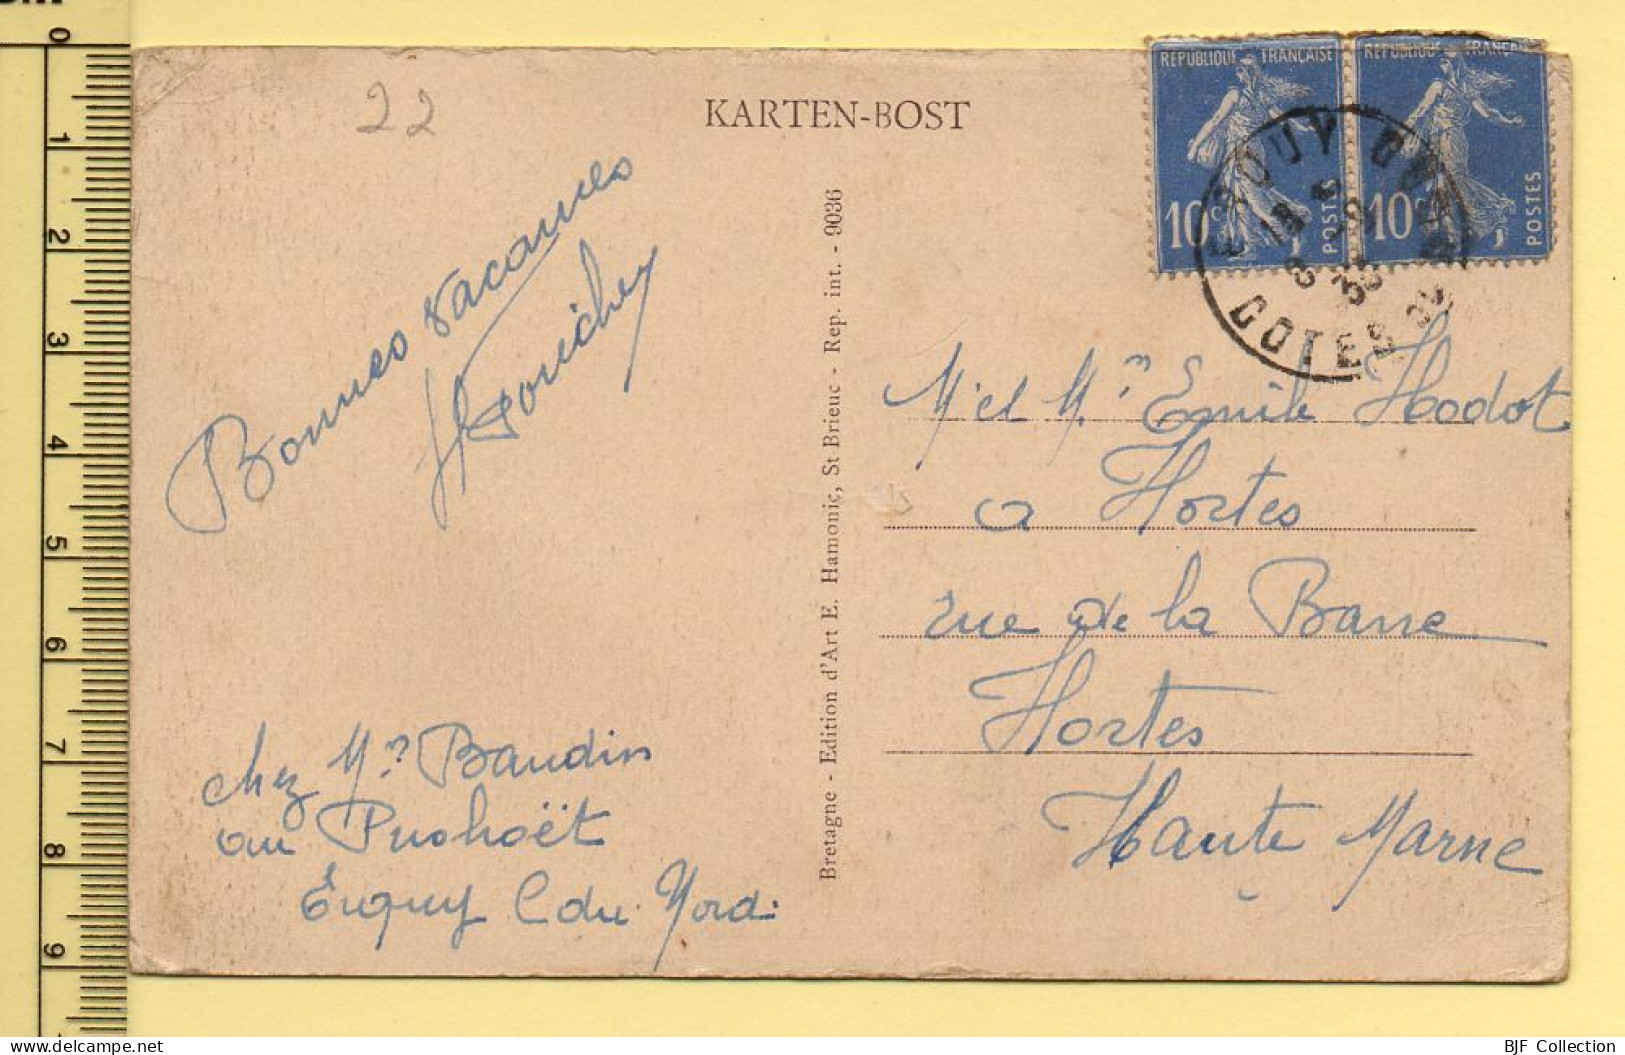 22
KARTEN-BOST
Bonnes vacances
Bretagne - Edition d'Art E. Hamonic, St Brieuc - Rep. int. - 9036
REPUBLIQUE FRANÇAISE
10c
POSTES
REPUBLIQUE FRANÇAISE
10c
POSTES
ERQUY
COTES DU NORD
M. et Mme Emile Hodot
a Hortes
rue de la Barre
Hortes
Haute Marne
chez Mme Baudin
au
Erquy C du Nord.
0
1
2
3
4
5
6
7
8
9
BJF Collection